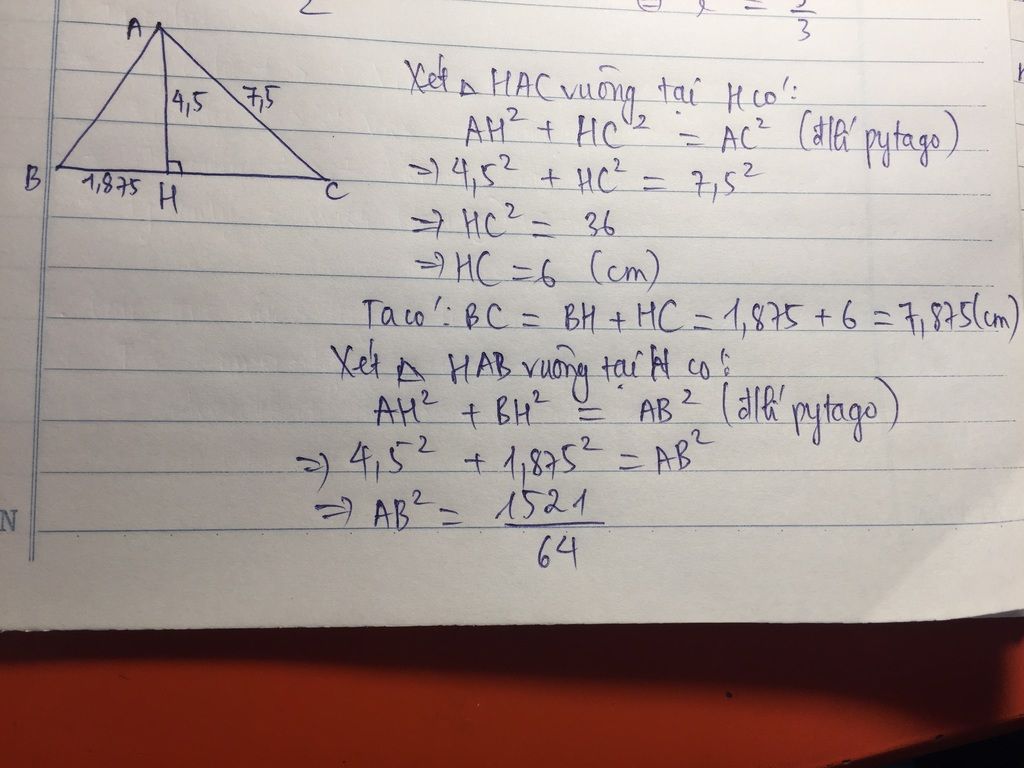 A
4,5
7,5
B
1,875
H
C
Xét △ HAC vuông tại H có:
AH² + HC² = AC² (đlí pytago)
⇒ 4,5² + HC² = 7,5²
⇒ HC² = 36
⇒ HC = 6 (cm)
Ta có: BC = BH + HC = 1,875 + 6 = 7,875(cm)
Xét △ HAB vuông tại H có:
AH² + BH² = AB² (đlí pytago)
⇒ 4,5² + 1,875² = AB²
⇒ AB² = 1521/64
N